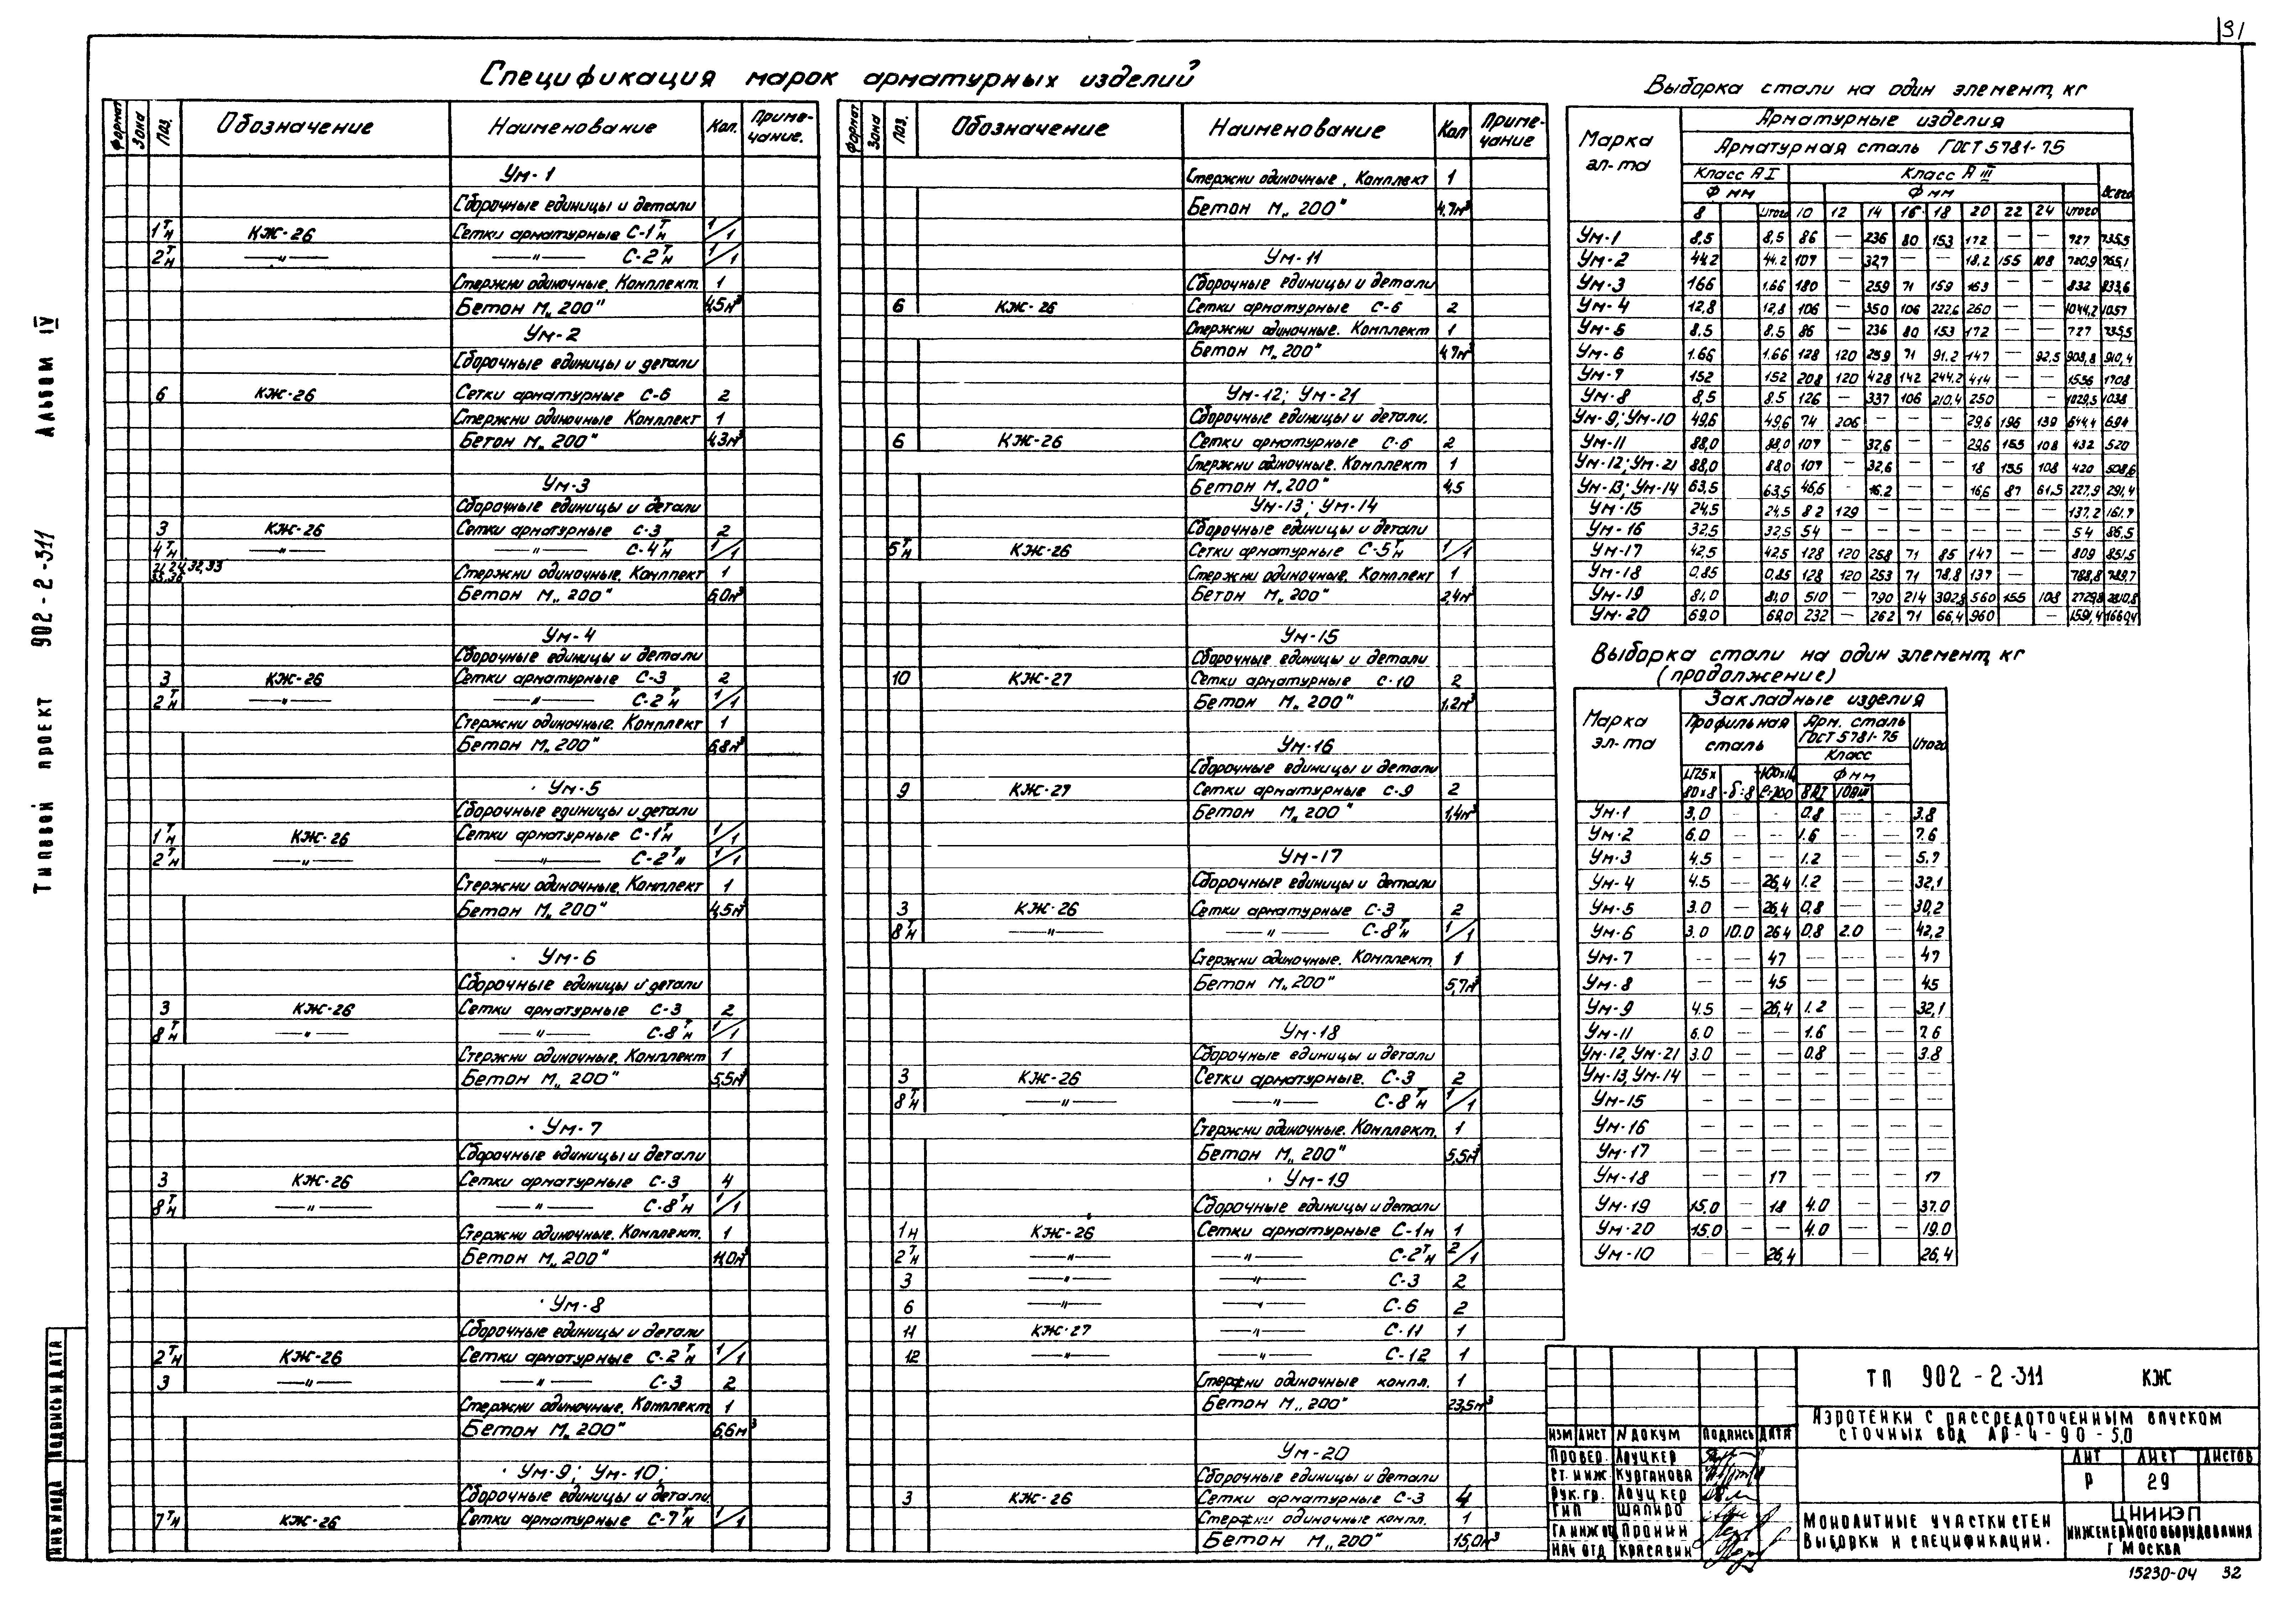 31
Спецификация марок арматурных изделий
Формат Зона Поз. Обозначение Наименование Кол. Примечание.
Ум-1
Сборочные единицы и детали
1 т/н КЖ-26 Сетки арматурные С-1 т/н 1/1
2 т/н —"— —"— С-2 т/н 1/1
Стержни одиночные. Комплект 1
Бетон М„200" 4,5м³
Ум-2
Сборочные единицы и детали
6 КЖ-26 Сетки арматурные С-6 2
Стержни одиночные Комплект 1
Бетон М„200" 4.3м³
Ум-3
Сборочные единицы и детали
3 КЖ-26 Сетки арматурные С-3 2
4 т/н —"— —"— С-4 т/н 1/1
Стержни одиночные. Комплект 1
Бетон М„200" 6,0м³
Ум-4
Сборочные единицы и детали
3 КЖ-26 Сетки арматурные С-3 2
2 т/н —"— —"— С-2 т/н 1/1
Стержни одиночные. Комплект 1
Бетон М„200" 6,8м³
Ум-5
Сборочные единицы и детали
1 т/н КЖ-26 Сетки арматурные С-1 т/н 1/1
2 т/н —"— —"— С-2 т/н 1/1
Стержни одиночные. Комплект 1
Бетон М„200" 4,5м³
Ум-6
Сборочные единицы и детали
3 КЖ-26 Сетки арматурные С-3 2
8 т/н —"— —"— С-8 т/н 1/1
Стержни одиночные. Комплект 1
Бетон М„200" 5,5м³
Ум-7
Сборочные единицы и детали
3 КЖ-26 Сетки арматурные С-3 4
8 т/н —"— —"— С-8 т/н 1/1
Стержни одиночные. Комплект. 1
Бетон М„200" 11,0м³
Ум-8
Сборочные единицы и детали
2 т/н КЖ-26 Сетки арматурные С-2 т/н 1/1
3 —"— —"— С-3 2
Стержни одиночные. Комплект 1
Бетон М„200" 6,6м³
Ум-9; Ум-10;
Сборочные единицы и детали.
7 т/н КЖ-26 Сетки арматурные С-7 т/н 1/1
Формат Зона Поз. Обозначение Наименование Кол Примечание
Стержни одиночные, Комплект 1
Бетон М„200" 4,7м³
Ум-11
Сборочные единицы и детали
6 КЖ-26 Сетки арматурные С-6 2
Стержни одиночные. Комплект 1
Бетон М„200" 4,7м³
Ум-12; Ум-21
Сборочные единицы и детали.
6 КЖ-26 Сетки арматурные С-6 2
Стержни одиночные. Комплект 1
Бетон М„200" 4,5
Ум-13; Ум-14
Сборочные единицы и детали
5 т/н КЖ-26 Сетки арматурные С-5 т/н 1/1
Стержни одиночные. Комплект 1
Бетон М„200" 2,4м³
Ум-15
Сборочные единицы и детали
10 КЖ-27 Сетки арматурные С-10 2
Бетон М„200" 1,2м³
Ум-16
Сборочные единицы и детали
9 КЖ-27 Сетки арматурные С-9 2
Бетон М„200" 1,4м³
Ум-17
Сборочные единицы и детали
3 КЖ-26 Сетки арматурные С-3 2
8 т/н —"— —"— С-8 т/н 1/1
Стержни одиночные. Комплект. 1
Бетон М„200" 5,7м³
Ум-18
Сборочные единицы и детали
3 КЖ-26 Сетки арматурные. С-3 2
8 т/н —"— —"— С-8 т/н 1/1
Стержни одиночные. Комплект. 1
Бетон М„200" 5,5м³
Ум-19
Сборочные единицы и детали
1н КЖ-26 Сетки арматурные С-1н 1
2 т/н —"— —"— С-2 т/н 2/1
3 —"— —"— С-3 2
6 —"— —"— С-6 2
11 КЖ-27 —"— С-11 1
12 —"— —"— С-12 1
Стержни одиночные компл. 1
Бетон М„200" 23,5м³
Ум-20
Сборочные единицы и детали
3 КЖ-26 Сетки арматурные С-3 4
Стержни одиночные компл. 1
Бетон М„200" 15,0м³
Выборка стали на один элемент, кг
Марка эл-та
Арматурные изделия
Арматурная сталь ГОСТ 5781-75
Класс АI Класс АIII Всего
Ф мм Ф мм
8 Итого 10 12 14 16 18 20 22 24 Итого
Ум-1 8,5 8,5 86 — 236 80 153 172 — — 727 735,5
Ум-2 44.2 44.2 107 — 32,7 — — 18,2 155 108 765,1
Ум-3 166 1.66 180 — 259 71 159 163 — — 832 833,6
Ум-4 12,8 12,8 106 — 350 106 222,6 260 — — 1044,2 1057
Ум-5 8.5 8.5 86 — 236 80 153 172 — — 727 735,5
Ум-6 1.66 1.66 128 120 259 71 91.2 147 — 92,5 908,8 910,4
Ум-7 152 152 208 120 428 142 244.2 414 — — 1556 1708
Ум-8 8,5 8.5 126 — 337 106 210,4 250 — — 1029,5 1038
Ум-9; Ум-10 49,6 49,6 74 206 — — — 29,6 196 139 644,4 694
Ум-11 88,0 88,0 107 — 32,6 — — 29,6 155 108 432 520
Ум-12; Ум-21 88,0 88,0 107 — 32,6 — — 18 155 108 420 508,6
Ум-13; Ум-14 63,5 63,5 46,6 - 16.2 — — 16,6 87 61.5 227,9 291,4
Ум-15 24,5 24,5 8 2 129 — — — — — — 137,2 161.7
Ум-16 32,5 32,5 54 — — — — — — — 54 86,5
Ум-17 42,5 42,5 128 120 258 71 85 147 — — 809 851,5
Ум-18 0,85 0,85 128 120 253 71 78.8 137 — 788,8 789,7
Ум-19 81,0 81,0 510 — 790 214 392,8 560 155 108 2729,8 2810,8
Ум-20 69.0 69,0 232 — 262 71 66,4 960 — 1591,4 1660,4
Выборка стали на один элемент, кг
(продолжение)
Марка эл-та
Закладные изделия
Профильная сталь Арм. сталь ГОСТ 5781-75 Итого
Класс
Ф мм
-δ=8 8АI 10АIII
Ум-1 3,0 - - 0.8 — — 3.8
Ум-2 6.0 — — 1.6 — — 7.6
Ум-3 4.5 — — 1.2 — — 5,7
Ум-4 4.5 — 26,4 1.2 — — 32,1
Ум-5 3.0 — 26,4 0,8 — — 30,2
Ум-6 3.0 10.0 26,4 0,8 2.0 — 42,2
Ум-7 — — 47 — — — 47
Ум-8 — — 45 — — — 45
Ум-9 4.5 — 26,4 1.2 — — 32,1
Ум-11 6.0 — — 1.6 — — 7.6
Ум-12, Ум-21 3.0 — — 0.8 — — 3.8
Ум-13, Ум-14 — — — — — — —
Ум-15 — — — — — — —
Ум-16 — — — — — — —
Ум-17 — — — — — — —
Ум-18 — — 17 — — — 17
Ум-19 15,0 — 18 4.0 — — 37.0
Ум-20 15,0 — — 4.0 — — 19.0
Ум-10 — — 26,4 — 26,4
Типовой проект 902-2-311 Альбом IV
Инв № подл Подпись и дата
ТП 902-2-311 КЖ
Аэротенки с рассредоточенным впуском
сточных вод АР-4-90-5,0
Изм Лист № докум Подпись Дата
Провер. Лоуцкер
Ст. инж. Курганова
Рук. гр. Лоуцкер
ГИП Шапиро
Гл инж от Пронин
Нач отд Красавин
Лит Лист Листов
Р 29
Монолитные участки стен
Выборки и спецификации.
ЦНИИЭП
инженерного оборудования
г Москва
15230-04 32